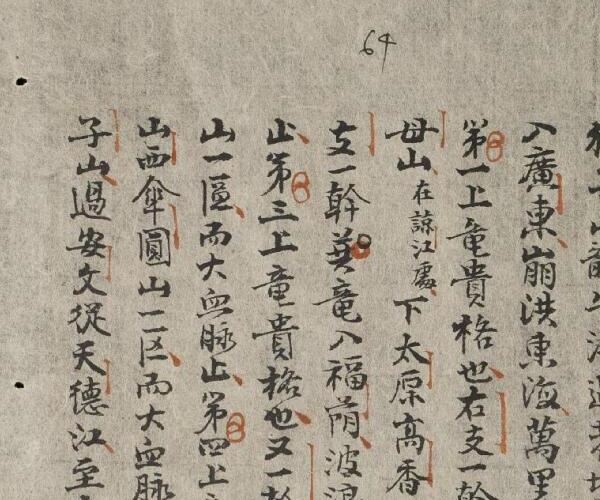 64
入廣東崩洪東海萬里
第一上竜貴格也右支一幹
母山在諒江處下太原高香
支一幹英竜入福蔭波浪
止第三上竜貴格也又一幹
山一區而大血脉止第四上
山西傘圓山一区而大血脉
子山過安文從天德江至